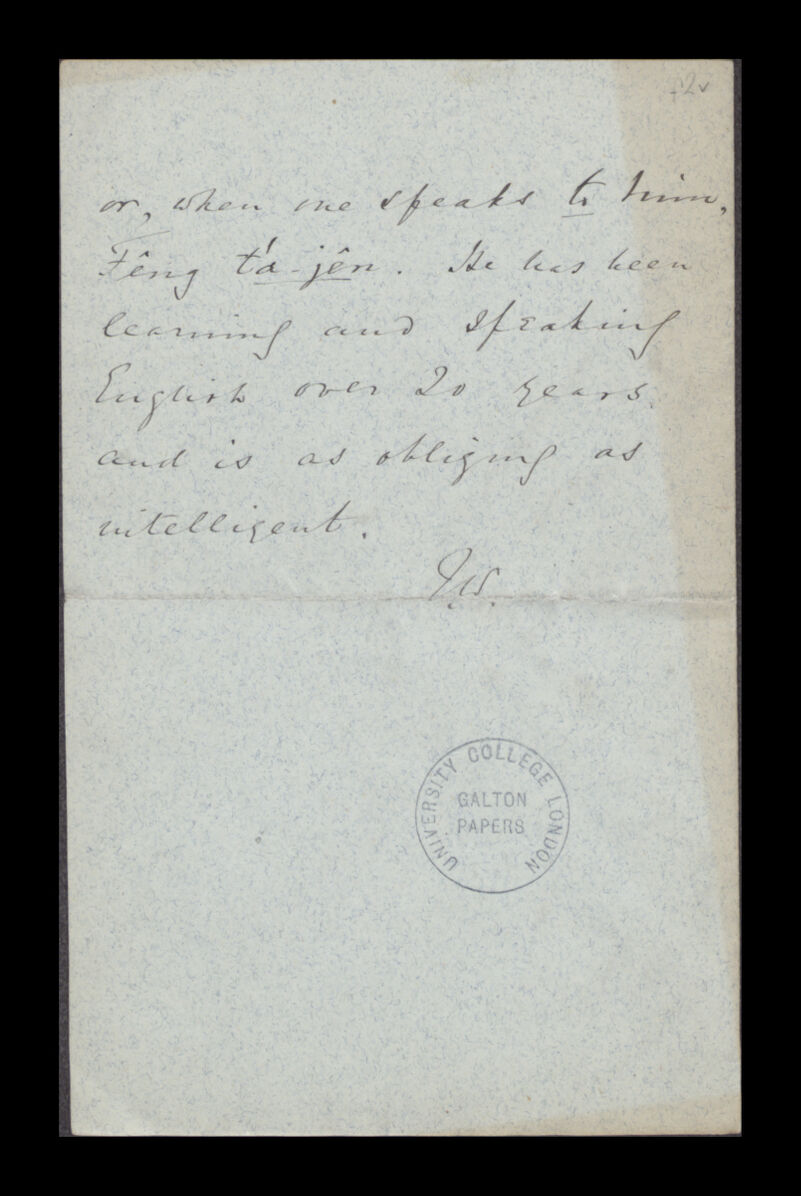 f2v
or, when one speaks to him,
Fêng t'a-jên. He has been
learning and speaking
English over 20 years
and is as obliging as
intelligent.
UNIVERSITY COLLEGE LONDON
GALTON
PAPERS